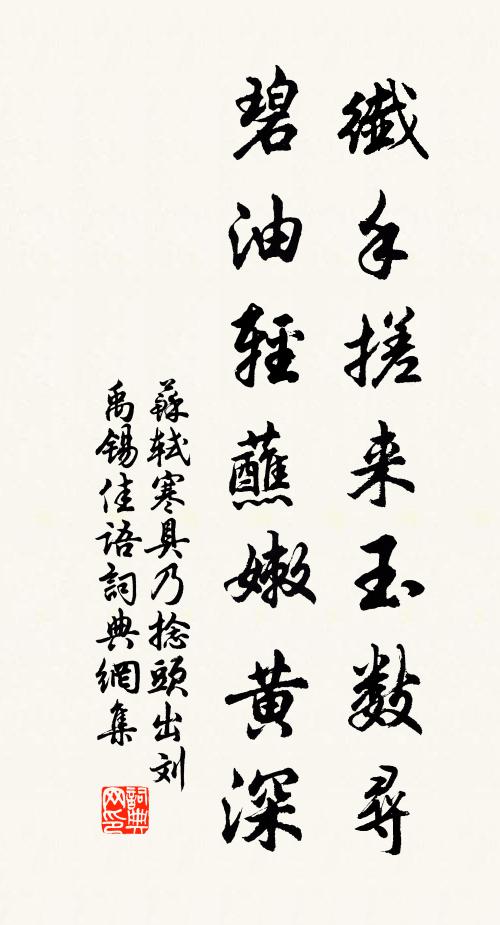 纖手搓来玉数尋
碧油輕蘸嫩黄深
蘇轼寒具乃捻頭出刘
禹锡佳語詞典網集
詞典網印